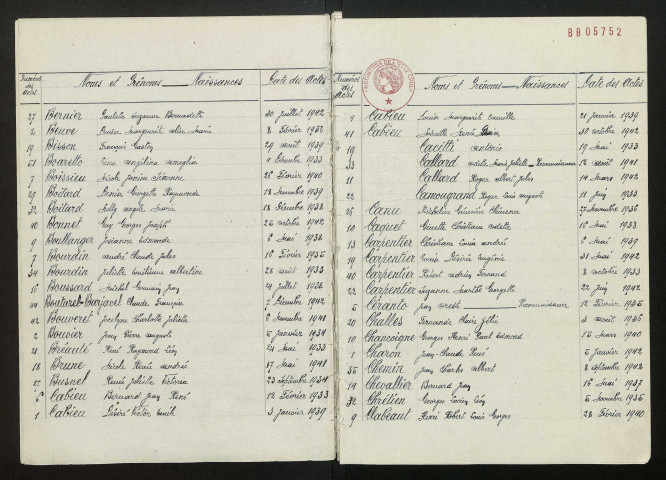 BB05752
Numéros des Actes Noms et Prénoms — Naissances Date des Actes
27 Bernier Paulette Suzanne Bernadette 30 juillet 1942
2 Beuve Marguerite Marie 8 Février 1932
19 Bisson François Gaston 29 août 1939
Boaretto 1933
7 Boissieu Nicole Janine Jeanne 26 Février 1940
29 Boitard Denise Georgette Raymonde 18 Novembre 1939
32 Boitard Nelly Angèle Marie 18 Décembre 1938
40 Bonnet Guy Georges Joseph 26 octobre 1942
9 Boullanger Josianne Edmonde 6 Mai 1938
7 Bourdin André Claude Jules 10 Février 1935
34 Bourdin Juliette Emilienne Albertine 28 août 1933
16 Boussard Michel Germain Jean 24 juillet 1936
44 Boutarel-Barjavel Claude François 7 Décembre 1942
42 Bouveret Jocelyne Charlotte Juliette 1941
2 Bouvier Jean Pierre Auguste 5 janvier 1934
21 Bréauté René Raymond Léon 24 Mai 1933
18 Brune Nicole Renée Andrée 17 Mai 1941
27 Busnel Renée Juliette Victoria 23 septembre 1934
6 Cabieu Bernard Jean René 12 Février 1933
1 Cabieu Désiré Victor Emile 3 janvier 1939
Numéros des Actes Noms et Prénoms — Naissances Date des Actes
4 Cabieu Louise Marguerite Camille 21 janvier 1939
41 Cabieu Mireille 30 octobre 1942
19 Cacitti Antonio 19 Mai 1933
33 Callard Odette Marie Juliette — Reconnaissance 12 août 1941
11 Callard Roger Albert Jules 14 Mars 1942
22 Camougrand Roger Louis August 11 juin 1933
26 Canu Micheline Ginette 27 Novembre 1936
10 Caquet Ginette Christiane Odette 10 Mai 1938
13 Carpentier Christian Louis André 6 Mai 1939
19 Carpentier Louise Désirée Eugénie 31 Mai 1942
40 Carpentier Robert Fernand 8 octobre 1933
22 Carpentier Suzanne Marthe Georgette 22 juin 1942
5 Céranto Jean — Reconnaissance 12 Février 1935
20 Challes Fernande Marie Zélie 3 août 1936
10 Chancoigne Georges Henri Raoul Edmond 15 Mars 1940
1 Charon Jean Claude René 5 janvier 1942
35 Chemin Jean Charles Albert 8 septembre 1942
14 Chevallier Bernard Jean 16 Mai 1937
32 Chrétien Georges Lucien Léon 5 Novembre 1935
9 Clabeaut Henri Robert Louis Georges 28 Février 1940